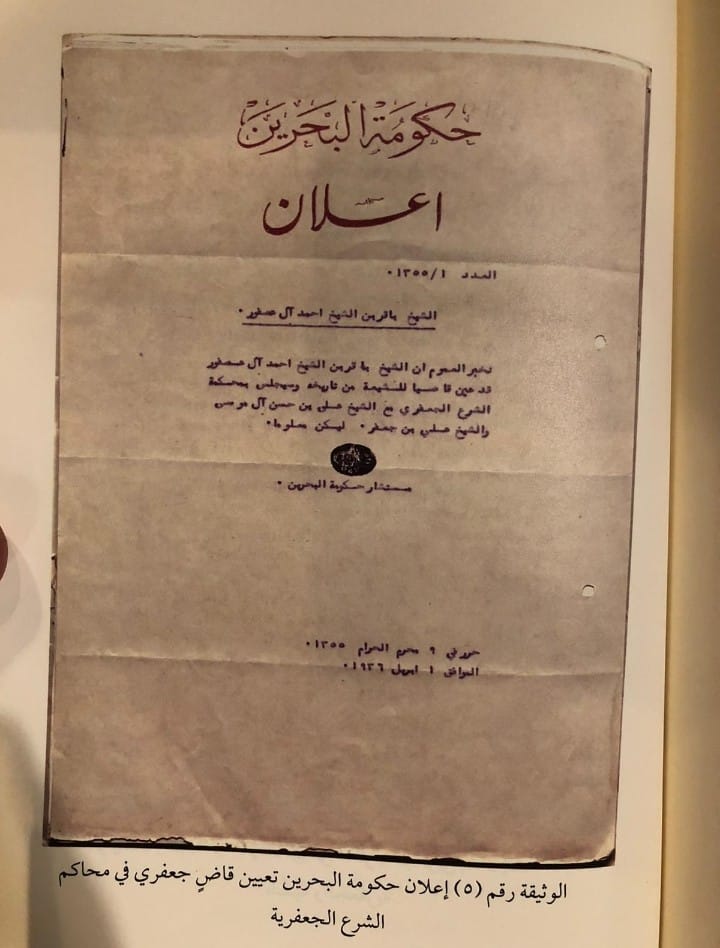 حكومة البحرين
اعلان
العدد ١/١٣٥٥٠
الشيخ باقر بن الشيخ احمد آل عصفور٠
نخبر العموم ان الشيخ باقر بن الشيخ احمد آل عصفور
قد عين قاضيا للشيعة من تاريخه وسيجلس بمحكمة
الشرع الجعفري مع الشيخ علي بن حسن آل موسى
والشيخ علي بن جعفر٠ ليكن معلوما٠
مستشار حكومة البحرين ٠
حرر في ٩ محرم الحرام ١٣٥٥٠
الموافق ١ ابريل ١٩٣٦٠
الوثيقة رقم (٥) إعلان حكومة البحرين تعيين قاضٍ جعفري في محاكم
الشرع الجعفرية